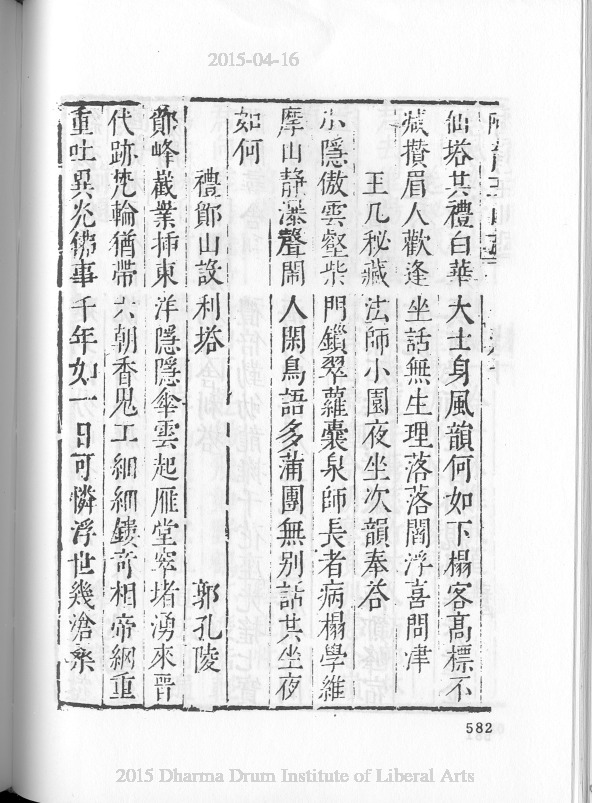 2015-04-16
仙塔共禮白華大士身風韻何如下榻客高標不
減攢眉人歡逢坐話無生理落落閻浮喜問津
王几秘藏法師小園夜坐次韻奉答
小隱傲雲壑柴門鎖翠蘿囊泉師長者病榻學維
摩山靜瀑聲閙人閑鳥語多蒲團無別話共坐夜
如何
禮鄮山設利塔 郭孔陵
鄮峰截業揷東洋隱隱傘雲起雁堂窣堵湧來晉
代跡梵輪猶帶六朝香鬼工細細鏤奇相帝網重
重吐異光佛事千年如一日可憐浮世幾滄桑
582
2015 Dharma Drum Institute of Liberal Arts